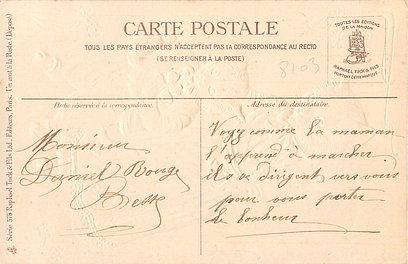 CARTE POSTALE
TOUS LES PAYS ÉTRANGERS N'ACCEPTENT PAS LA CORRESPONDANCE AU RECTO
(SE RENSEIGNER À LA POSTE)
TOUTES LES EDITIONS
DE LA MAISON
RAPHAEL TUCK & FILS
PORTENT CETTE MARQUE
8103
Partie réservée à la correspondance.
Adresse du destinataire.
Monsieur
Daniel Rouge
Besse
Voyez comme la maman
l'apprend à marcher
ils se dirigent vers vous
pour vous porter
le bonheur
Série 575 Raphael Tuck & Fils Ltd., Editeurs, Paris. Un mot à la Poste (Déposé)